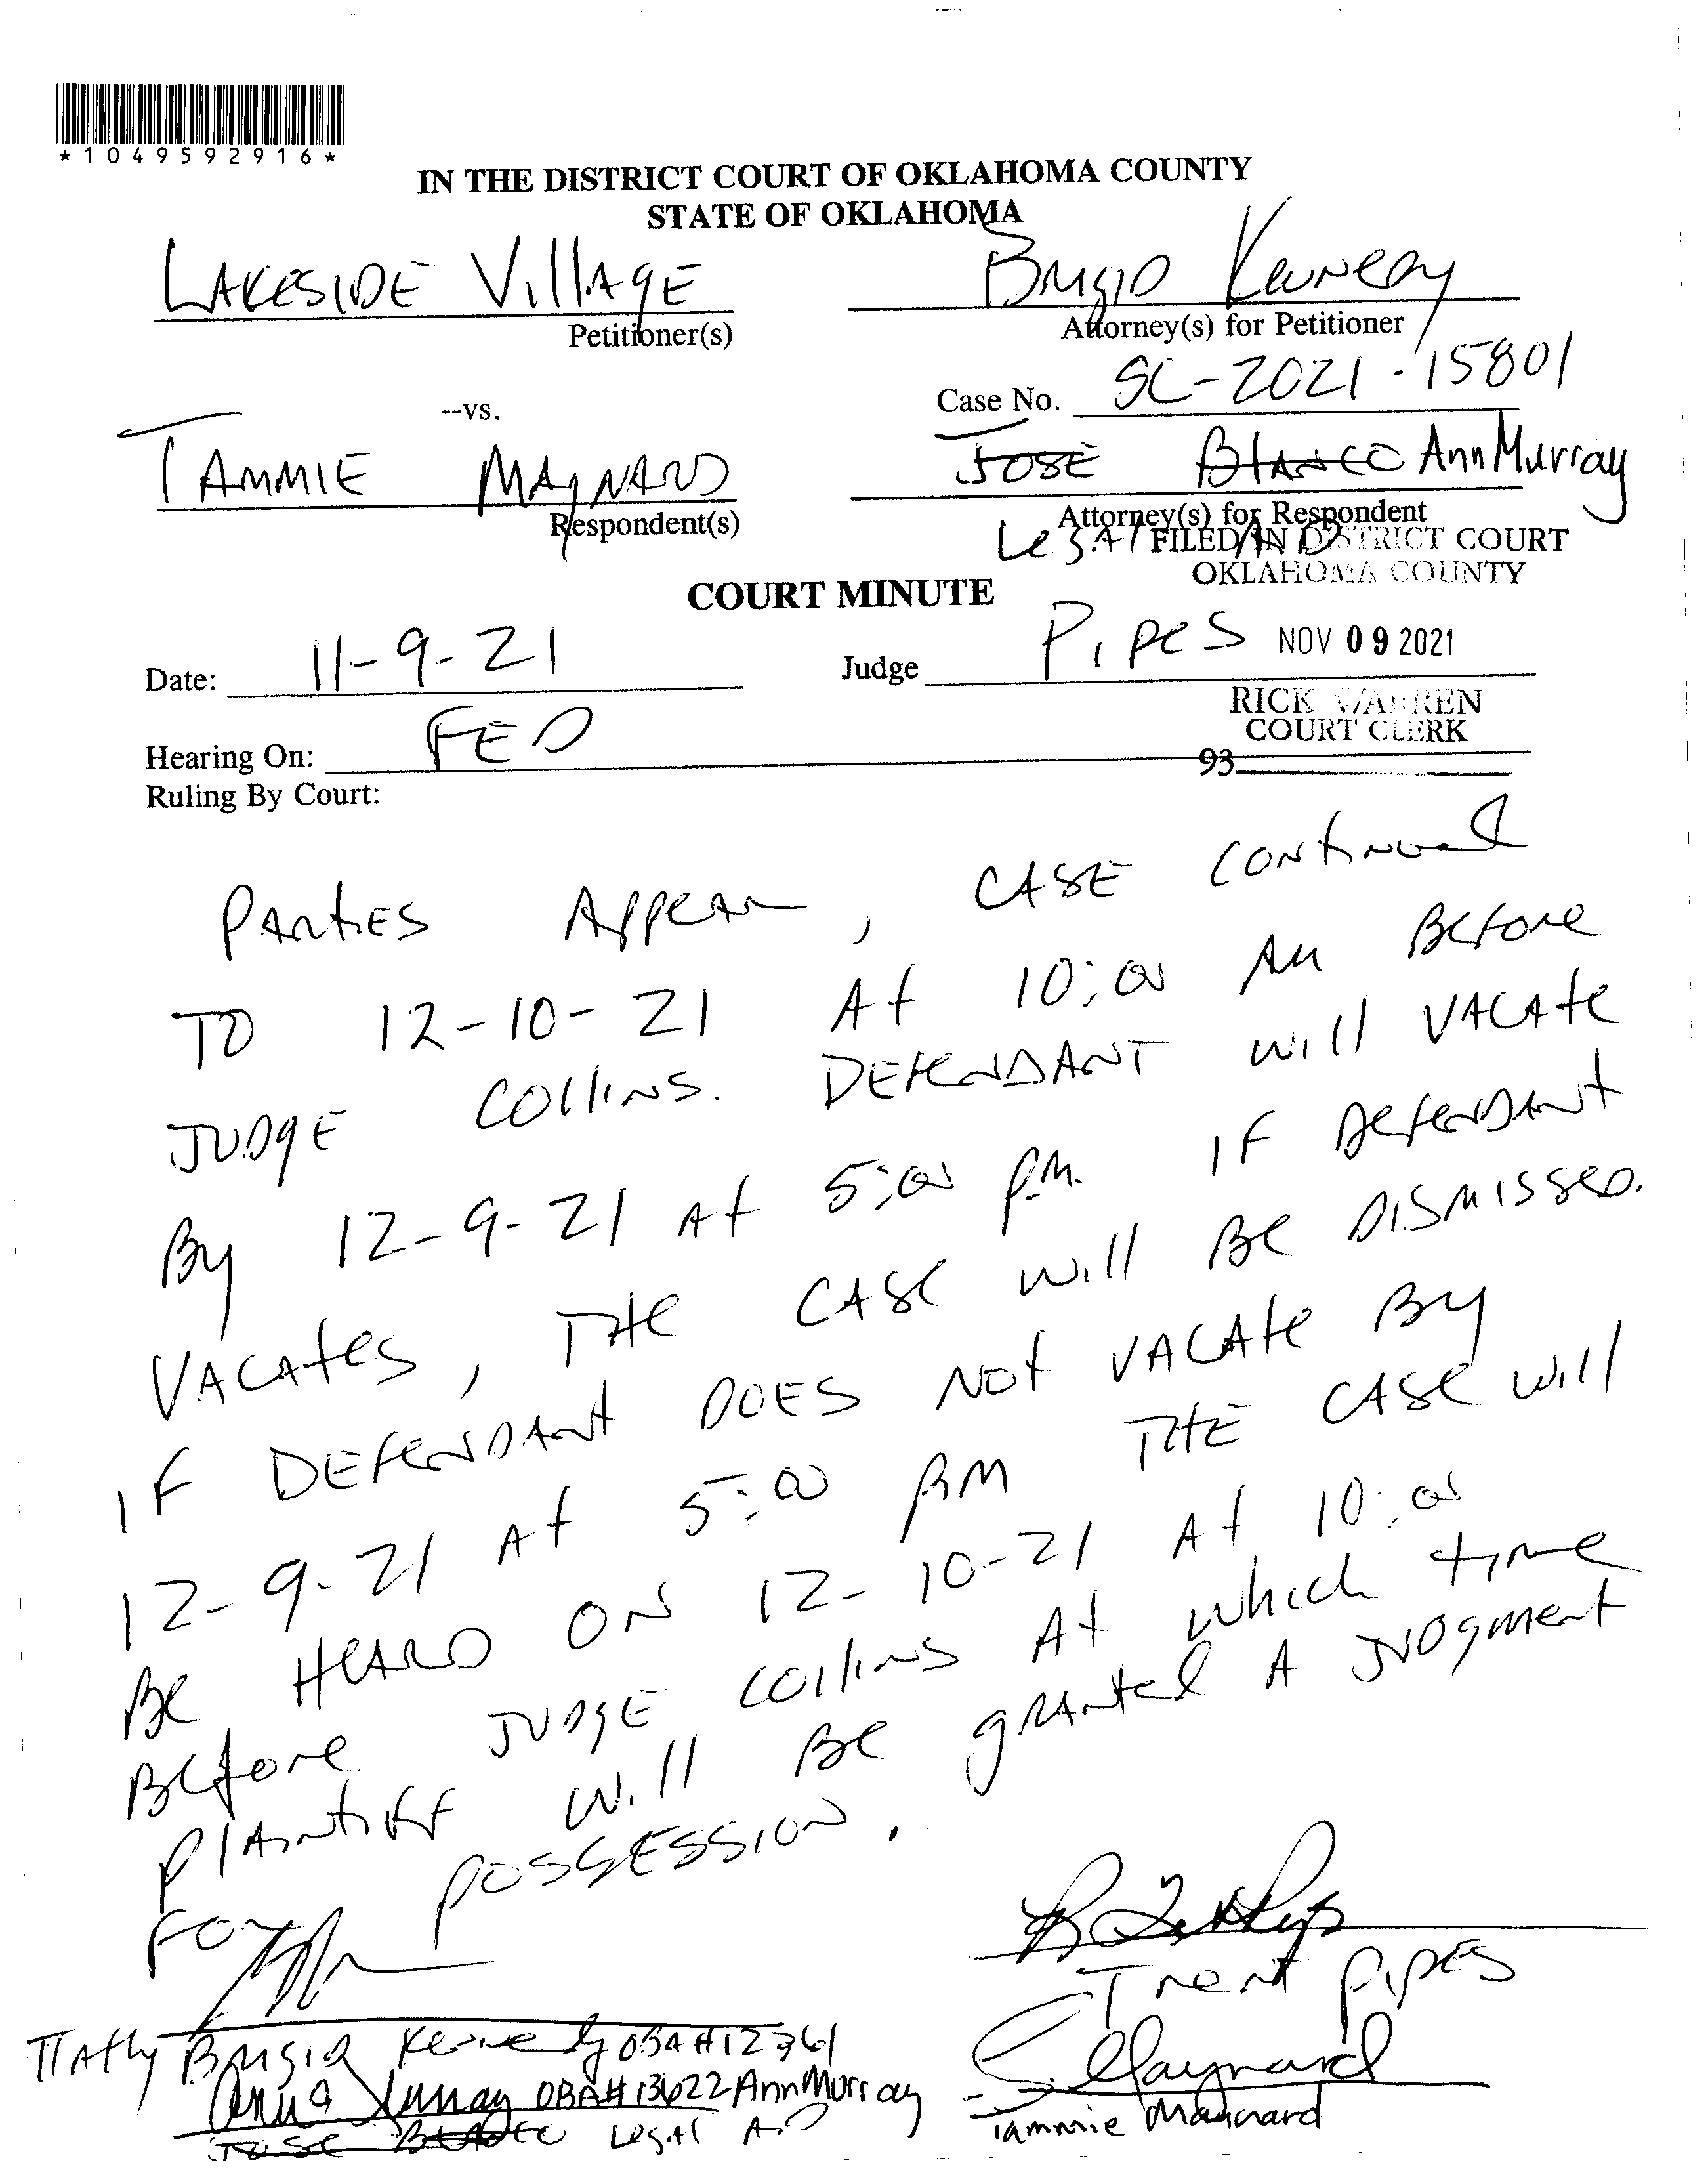 *1049592916*
IN THE DISTRICT COURT OF OKLAHOMA COUNTY
STATE OF OKLAHOMA
LAKESIDE VillAgE
Petitioner(s)
BRIGID KENNEDY
Attorney(s) for Petitioner
Case No. SC-2021-15801
--vs.
TAMMIE MAYNARD
Respondent(s)
JOSE BLANCO Ann Murray
Attorney(s) for Respondent
LegAl AID
FILED IN DISTRICT COURT
OKLAHOMA COUNTY
COURT MINUTE
Date: 11-9-21
Judge PipeS
NOV 09 2021
RICK WARREN
COURT CLERK
Hearing On: FED
93
Ruling By Court:
PARtiES AppeAR, CASE CONtiNued
TO 12-10-21 At 10:00 AM BeFORe
JUDgE COllINS. DEFeNDANT will VACAte
By 12-9-21 At 5:00 P.M. IF DeFeNDANt
VACAtes, THe CASe will Be DISMISSeD.
IF DEFeNDANt DOES NOt VACAte By
12-9-21 At 5:00 PM THE CASe will
Be HeARD ON 12-10-21 At 10:00
BeFore JUDgE COllins At which time
PlAintiFF will Be gRANted A JUDgment
FOR POSSESSION.
Trent PipES
TiAtty Brigid Kennedy OBA#12361
Anna Murray OBA#13622 Ann Murray
JOSE BLANCO LegAl AiD
S. Maynard
Tammie Maynard